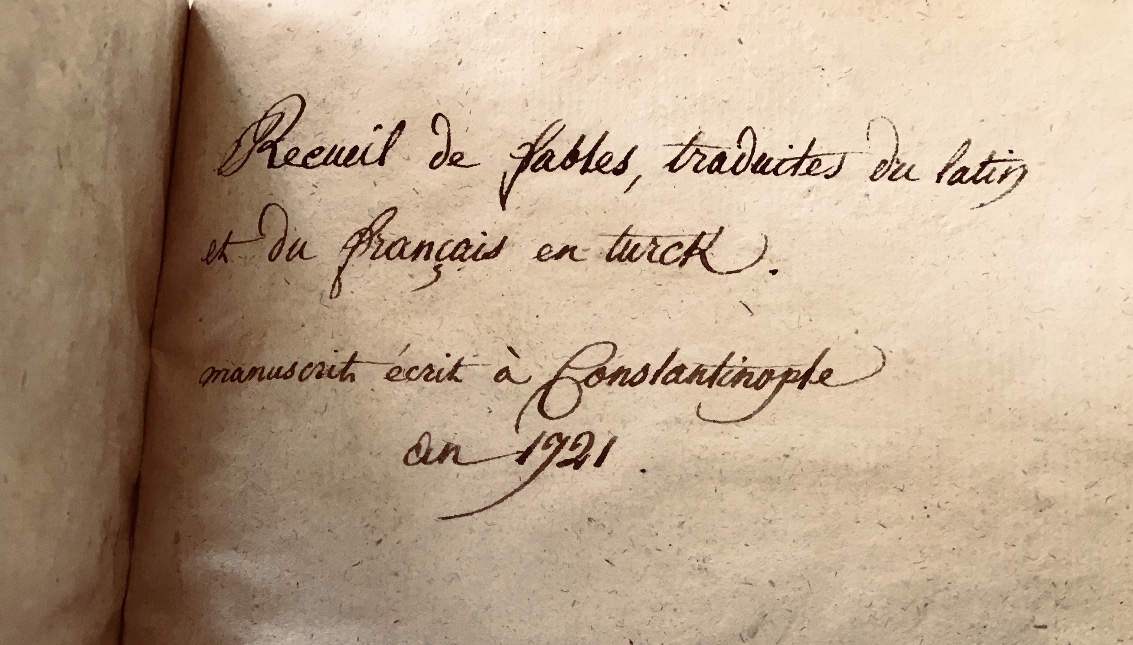 Recueil de fables, traduites du latin
et du français en turck.
manuscrit écrit à Constantinople
an 1721.